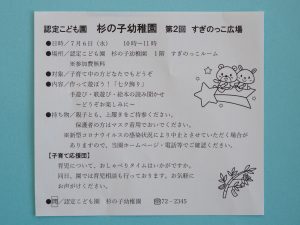 認定こども園 杉の子幼稚園 第2回 すぎのっこ広場
●日時／7月6日（水） 10時～11時
●場所／認定こども園 杉の子幼稚園 1階 すぎのっこルーム
※参加費無料
●対象／子育て中の方どなたでもどうぞ
●内容／作って遊ぼう！「七夕飾り」
手遊び・紙遊び・絵本の読み聞かせ
～どうぞお楽しみに～
●持ち物／親子とも、上履きをご持参ください。
保護者の方はマスク着用でおいでください。
※新型コロナウイルスの感染状況により中止とさせていただく場合が
ありますので、当園ホームページ・電話等でご確認ください。
【子育て応援団】
育児について、おしゃべりタイムはいかがですか。
同日、園では育児相談も行っております。お気軽に
お声がけください。
●問／認定こども園 杉の子幼稚園 ☎72－2345